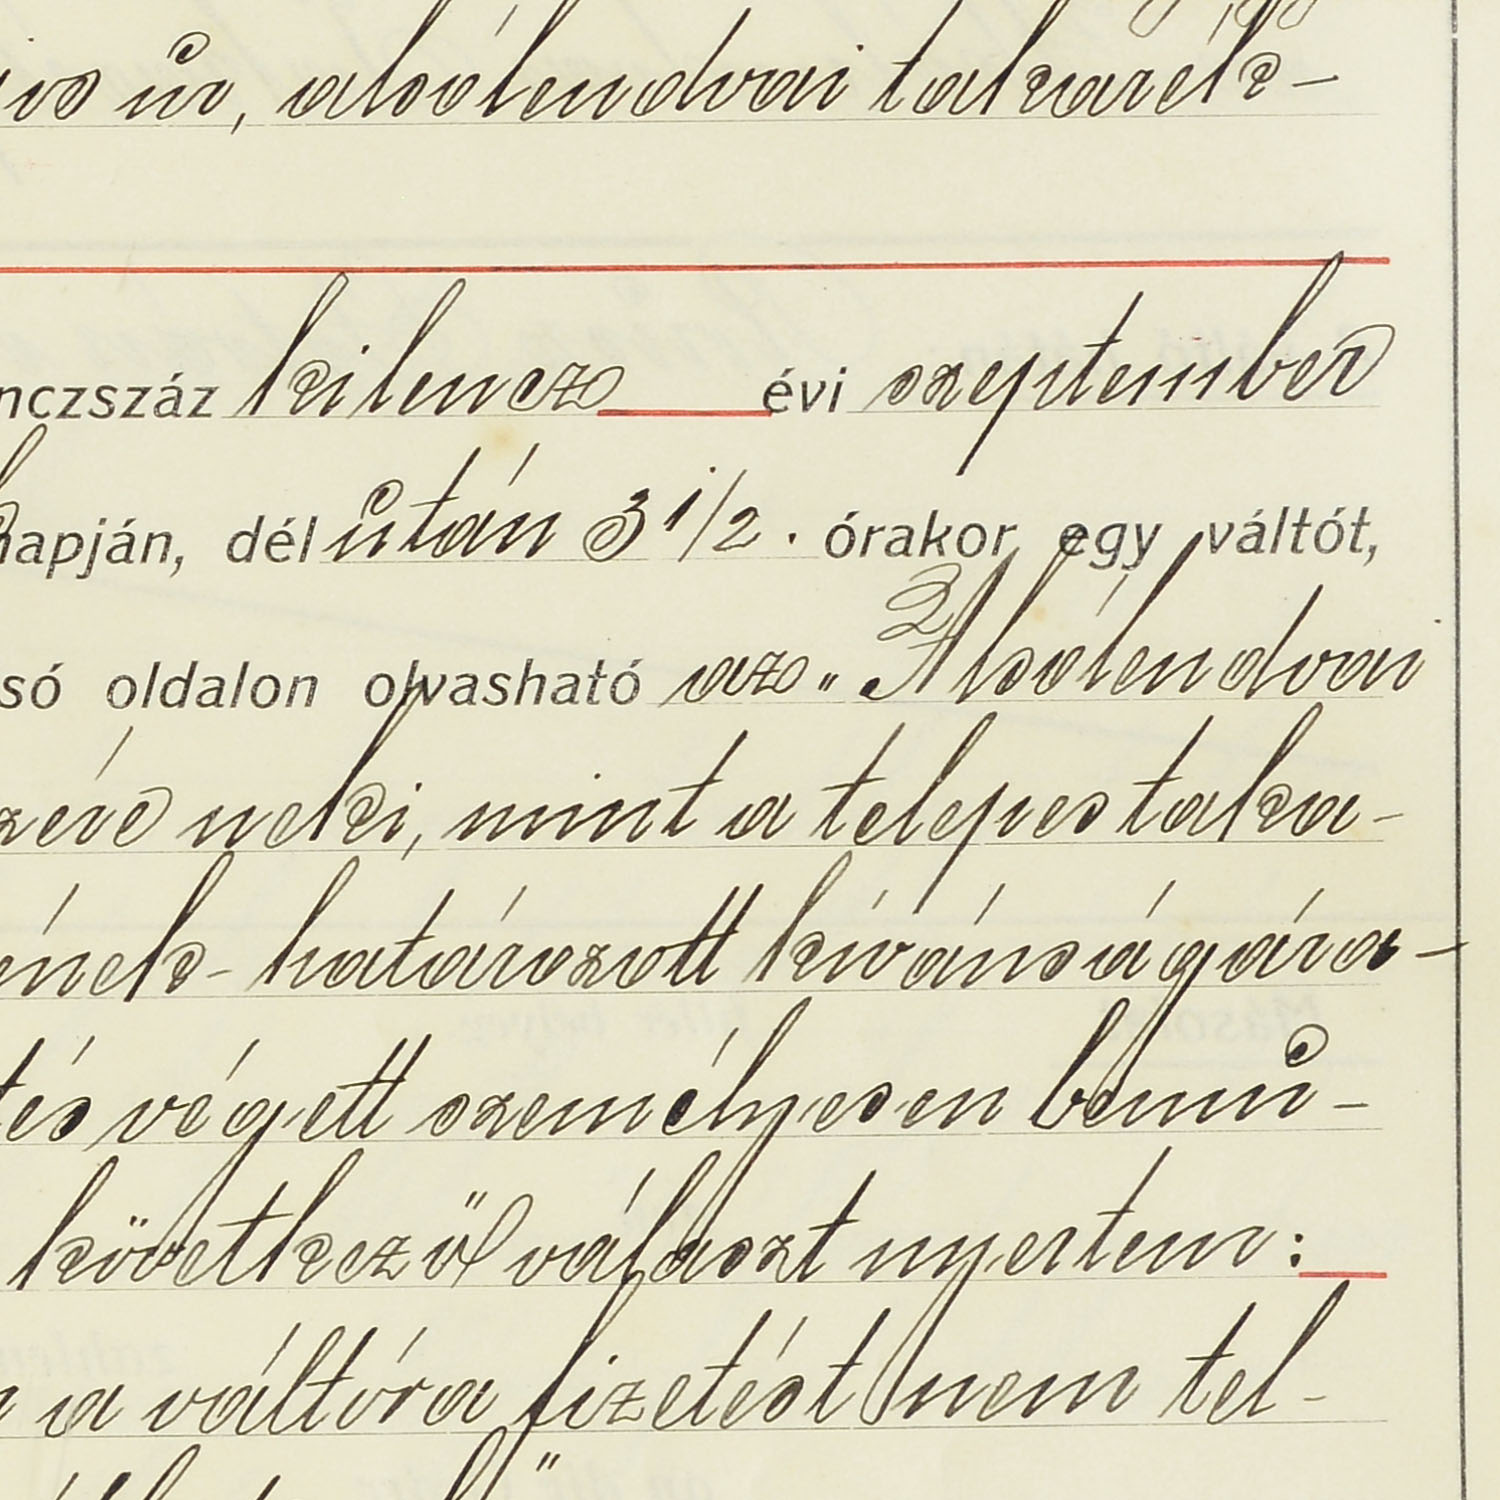 is úr, alsólendvai takarék-
nczszáz kilencz évi szeptember
napján, délután 3 1/2. órakor egy váltót,
só oldalon olvasható az „Alsólendvai
zére neki, mint a telepes taka-
ének - határozott kívánságára -
tés végett személyesen bemu-
következő választ nyertem:
a váltóra fizetést nem tel-